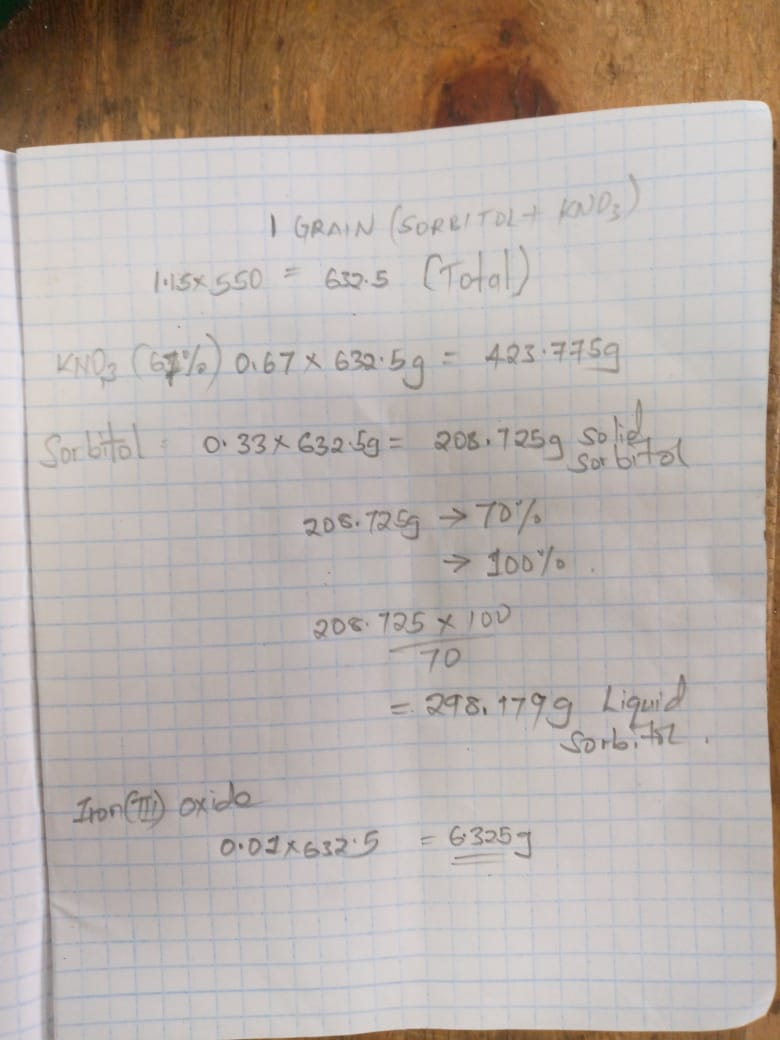 1 GRAIN (SORBITOL + KNO₃)
1.15 x 550 = 632.5 (Total)
KNO₃ (67%) 0.67 x 632.5g = 423.775g
Sorbitol = 0.33 x 632.5g = 208.725g solid
sorbitol
208.725g → 70%
→ 100%.
208.725 x 100
70
= 298.179g Liquid
Sorbitol.
Iron(III) oxide
0.01 x 632.5 = 6.325g